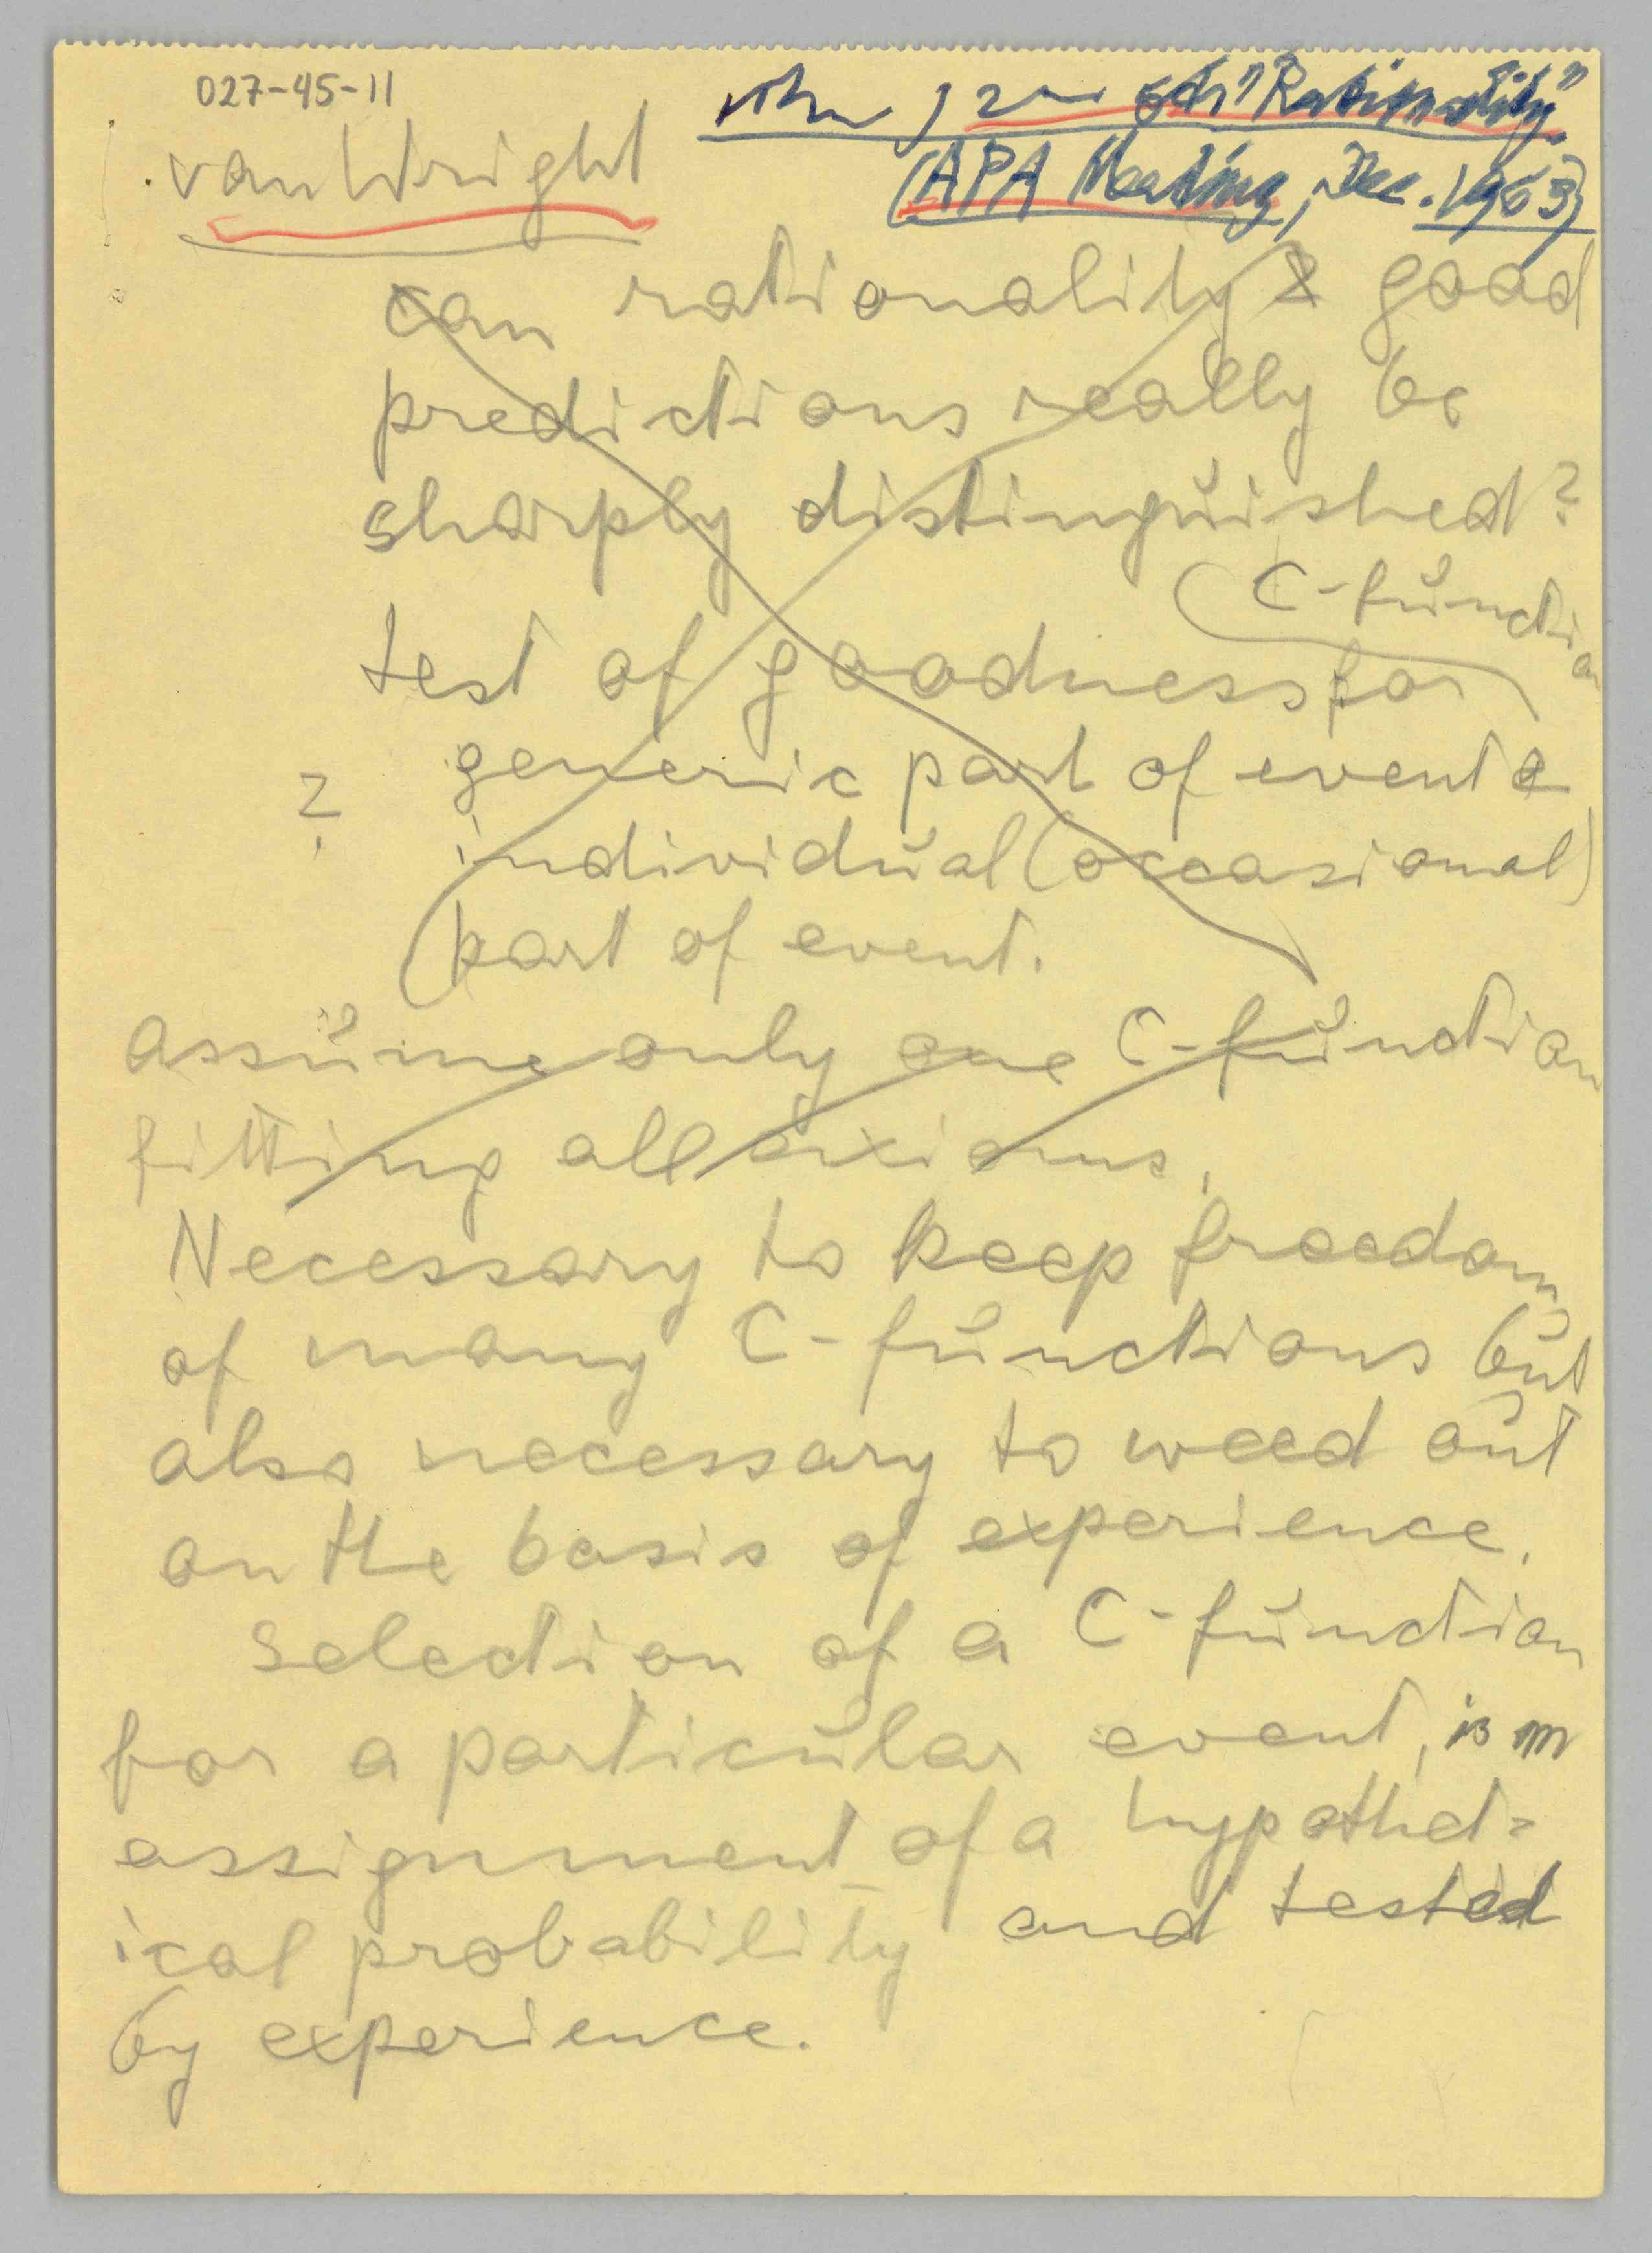 027-45-11
"Rationality"
van Wright
(APA Meeting, Dec. 1963)
can rationality & good
predictions really be
sharply distinguished?
C-function
test of goodness for
generic part of event &
? individual (occasional)
part of event.
Assume only one C-function
fitting all axioms.
Necessary to keep freedom
of many C-functions but
also necessary to weed out
on the basis of experience.
Selection of a C-function
for a particular event, is an
assignment of a hypothet=
ical probability and tested
by experience.